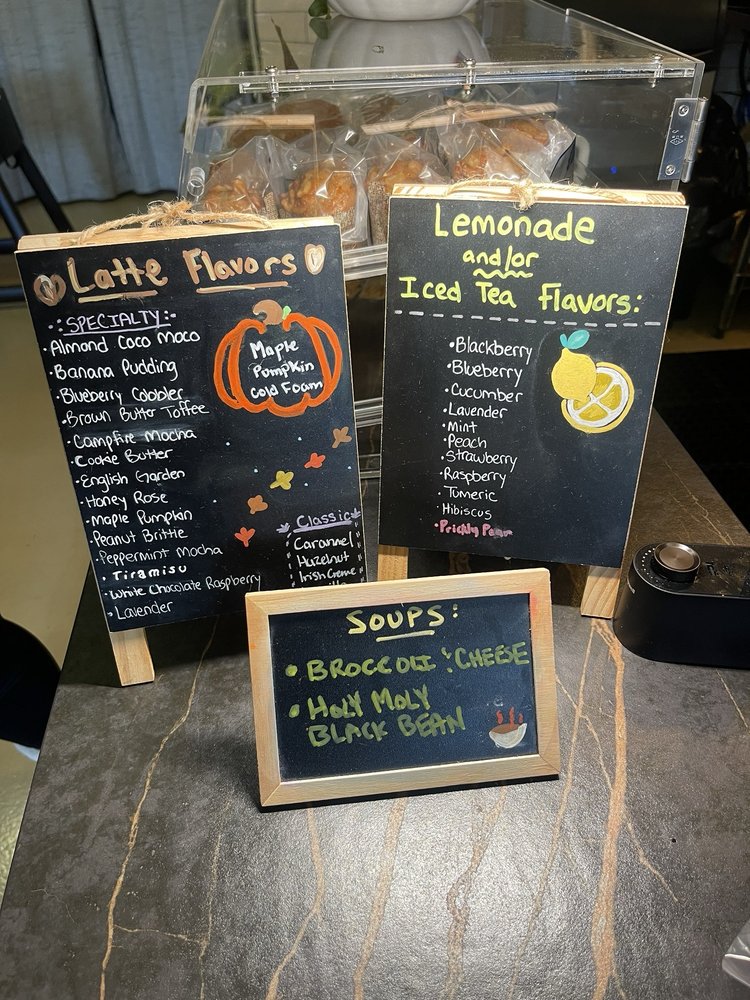 Latte Flavors
SPECIALTY:
• Almond Coco Moco
• Banana Pudding
• Blueberry Cobbler
• Brown Butter Toffee
• Campfire Mocha
• Cookie Butter
• English Garden
• Honey Rose
• Maple Pumpkin
• Peanut Brittle
• Peppermint Mocha
• Tiramisu
• White Chocolate Raspberry
• Lavender
Maple
Pumpkin
Cold Foam
Classic
Caramel
Hazelnut
Irish Creme
Lemonade
and/or
Iced Tea Flavors:
• Blackberry
• Blueberry
• Cucumber
• Lavender
• Mint
• Peach
• Strawberry
• Raspberry
• Tumeric
• Hibiscus
• Prickly Pear
SOUPS:
• BROCCOLI & CHEESE
• HOLY MOLY
BLACK BEAN